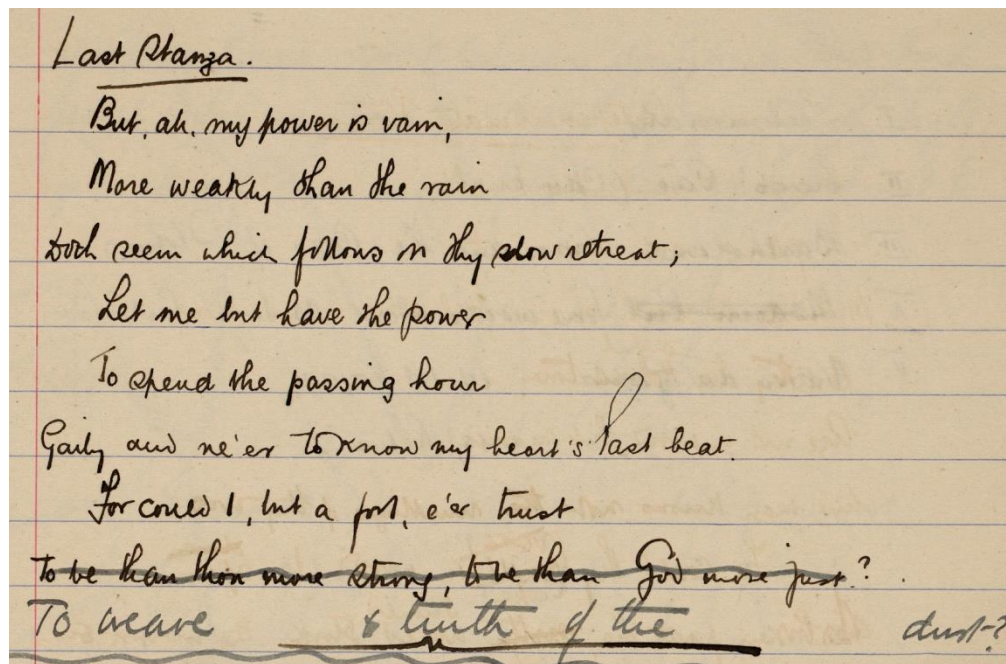 Last Stanza.
But, ah, my power is vain,
More weakly than the rain
Doth seem which follows on thy slow retreat;
Let me but have the power
To spend the passing hour
Gaily and ne'er to know my heart's last beat.
For could I, but a fool, e'er trust
To be than thou more strong, to be than God more just?
To weave & truth of the dust?